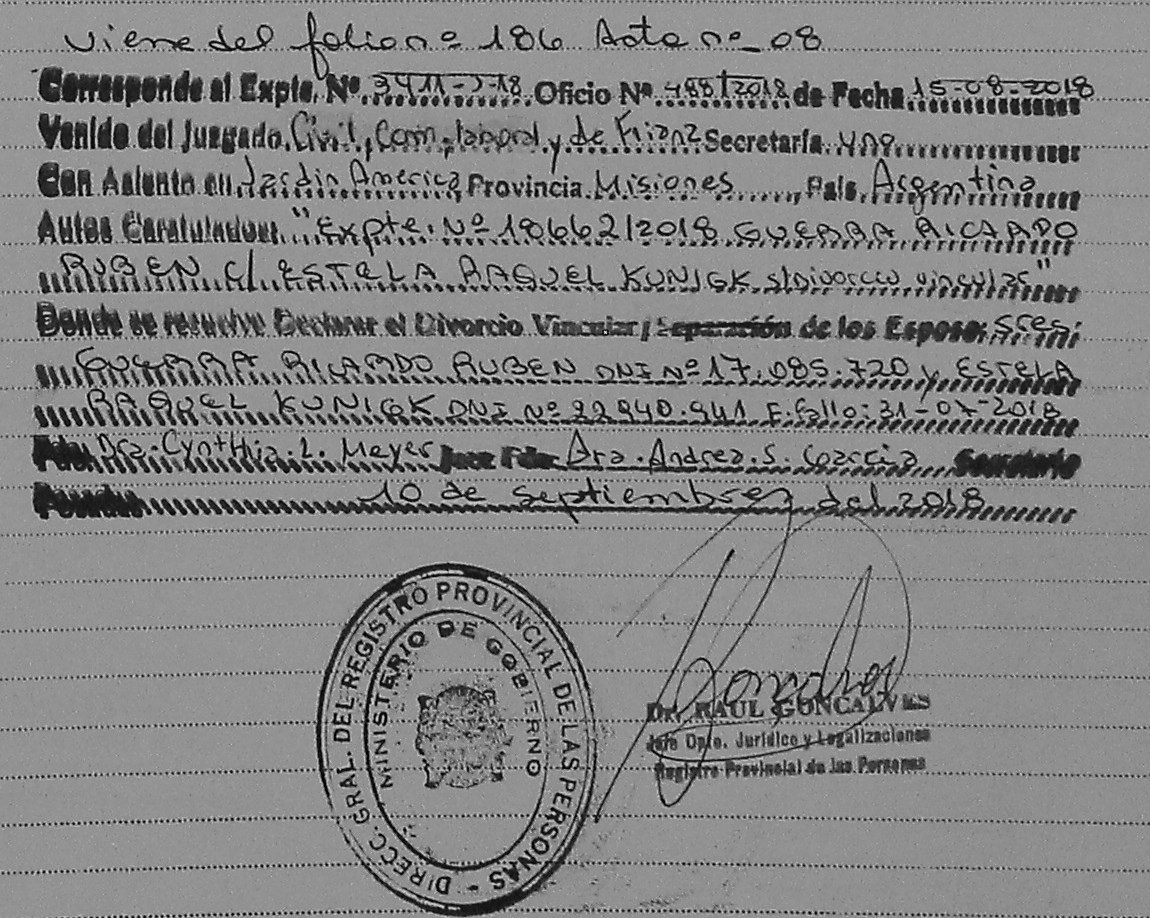 Viene del folio nº 186 Acta nº 08
Corresponde al Expte. Nº 3411-J-18 Oficio Nº 488/2018 de Fecha 15-08-2018
Venido del Juzgado Civil, Com, laboral y de Flianz Secretaría una
Con Asiento en Jardin América Provincia Misiones País Argentina
Autos Caratulados "Expte. Nº 18662/2018 GUERRA RICARDO
RUBEN C/ ESTELA RAQUEL KUNIGK s/Divorcio vincular"
Donde se resuelve Declarar el Divorcio Vincular / Separación de los Esposos Sres.
GUERRA RICARDO RUBEN DNI Nº 17.085.720 y ESTELA
RAQUEL KUNIGK DNI Nº 22940.941 F. fallo: 31-07-2018
Fdo. Dra. Cynthia L. Meyer Juez Fdo. Dra. Andrea S. Garcia Secretario
Posadas 10 de septiembre del 2018
DIRECC. GRAL. DEL REGISTRO PROVINCIAL DE LAS PERSONAS -
MINISTERIO DE GOBIERNO
Dr. RAUL GONCALVES
Jefe Dpto. Jurídico y Legalizaciones
Registro Provincial de las Personas